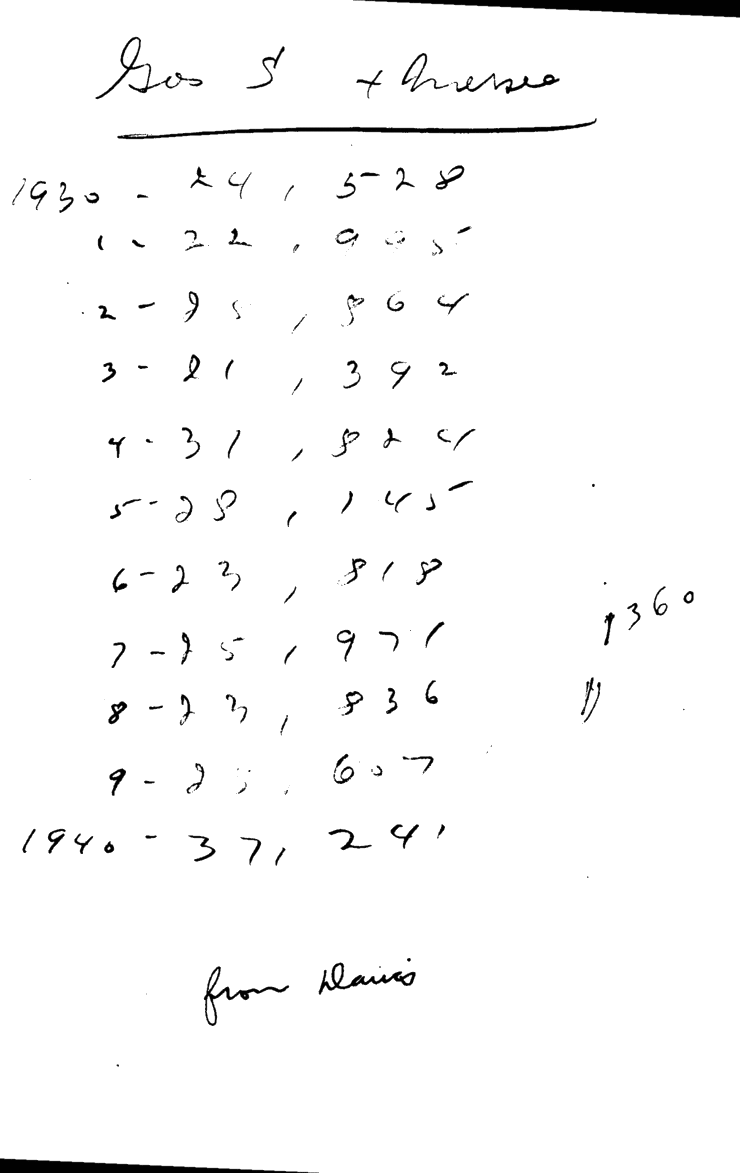 Gas S +
1930 - 24,528
1 - 22,905
2 - 25,864
3 - 21,392
4 - 31,824
5 - 28,145
6 - 23,818
7 - 25,971
8 - 23,836
9 - 607
1940 - 37,241
1360
from Davis